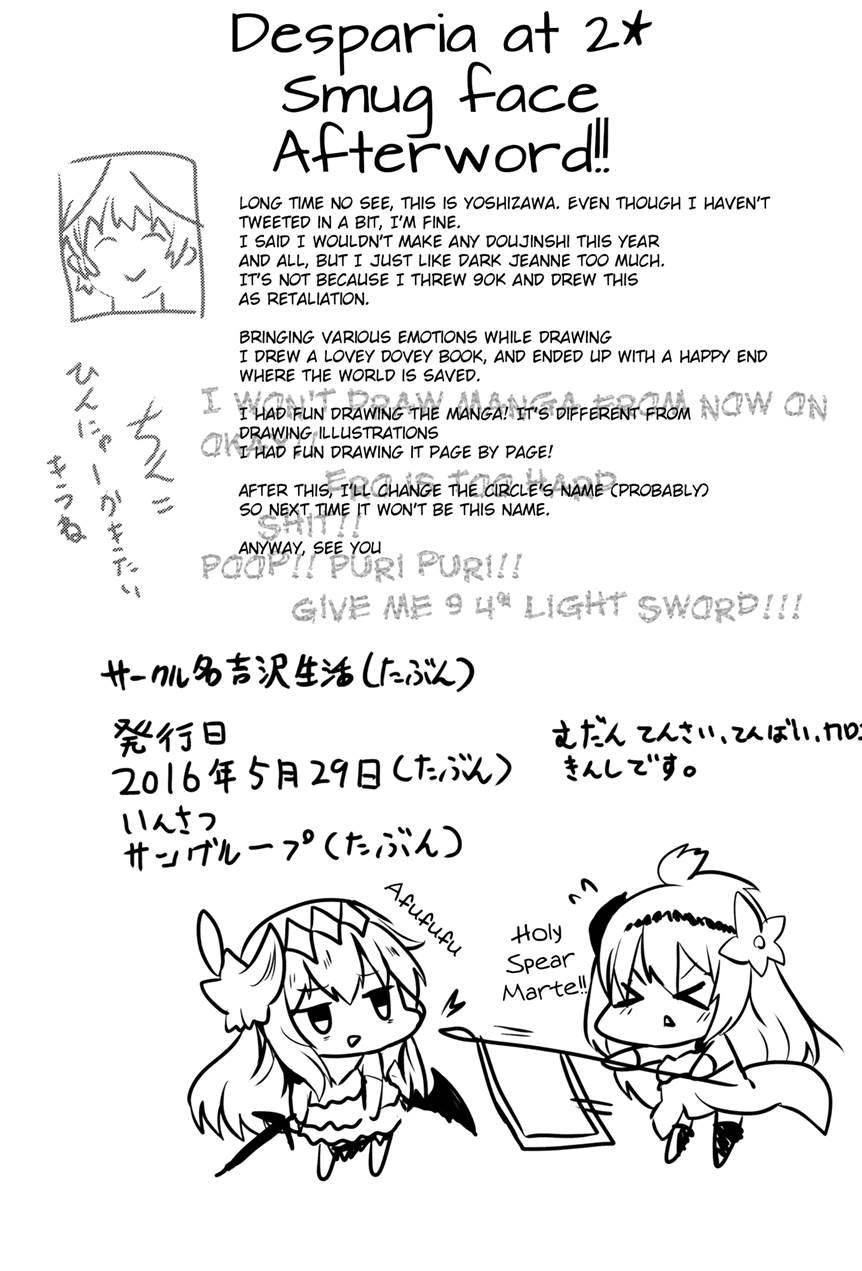 Desparia at 2*
Smug face
Afterword!!
LONG TIME NO SEE, THIS IS YOSHIZAWA. EVEN THOUGH I HAVEN'T
TWEETED IN A BIT, I'M FINE.
I SAID I WOULDN'T MAKE ANY DOUJINSHI THIS YEAR
AND ALL, BUT I JUST LIKE DARK JEANNE TOO MUCH.
IT'S NOT BECAUSE I THREW 90K AND DREW THIS
AS RETALIATION.
BRINGING VARIOUS EMOTIONS WHILE DRAWING
I DREW A LOVEY DOVEY BOOK, AND ENDED UP WITH A HAPPY END
WHERE THE WORLD IS SAVED.
I WON'T DRAW MANGA FROM NOW ON
I HAD FUN DRAWING THE MANGA! IT'S DIFFERENT FROM
DRAWING ILLUSTRATIONS
OKAY!!
I HAD FUN DRAWING IT PAGE BY PAGE!
ERO IS TOO HARD
AFTER THIS, I'LL CHANGE THE CIRCLE'S NAME (PROBABLY)
SO NEXT TIME IT WON'T BE THIS NAME.
SHIT!!
ANYWAY, SEE YOU
POOP!! PURI PURI!!
GIVE ME 9 4* LIGHT SWORD!!!
ちんこ
ひんにゅーかきたい
きつね
サークル名吉沢生活(たぶん)
発行日
2016年5月29日(たぶん)
いんさつ
サングループ(たぶん)
むだんてんさい、てんばい、カロ
きんしです。
Afufufu
Holy
Spear
Marte!!